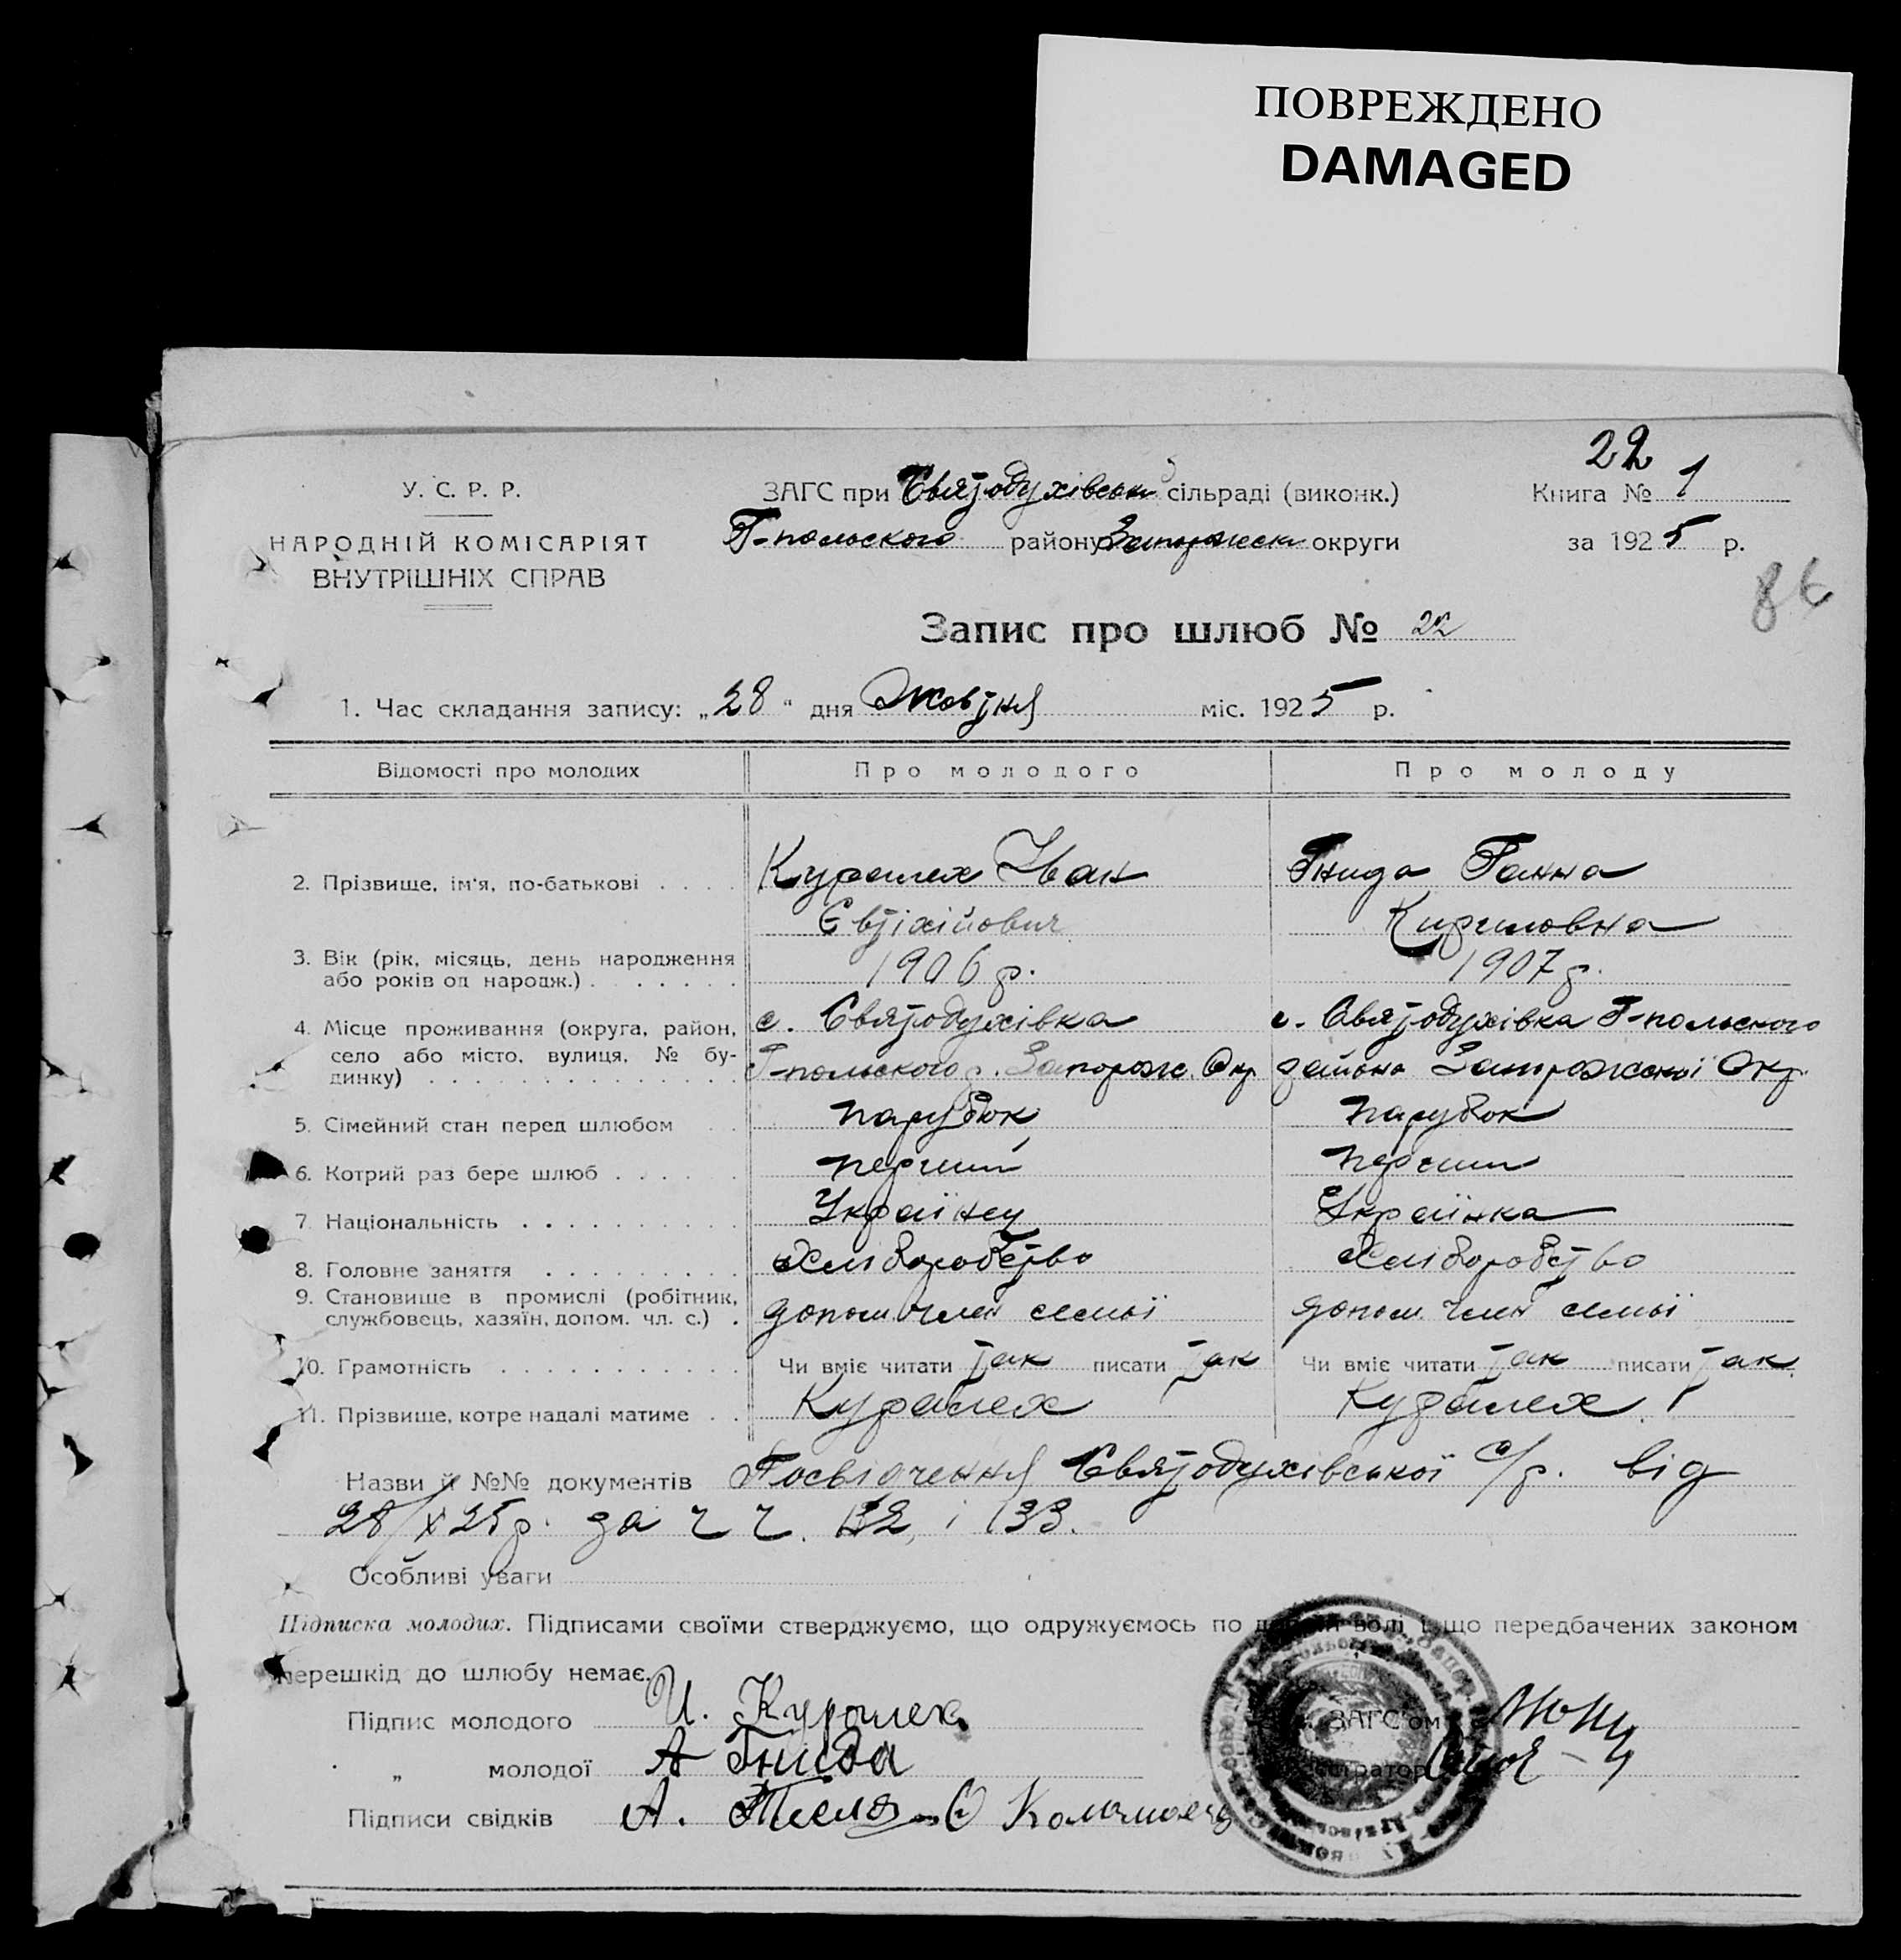 ПОВРЕЖДЕНО
DAMAGED
22
У. С. Р. Р.
НАРОДНІЙ КОМІСАРІЯТ
ВНУТРІШНІХ СПРАВ
ЗАГС при Святодухівськ сільраді (виконк.)
Г-польского району Запорожськ округи
Книга № 1
за 1925 р.
86
Запис про шлюб № 22
1. Час складання запису: „28" дня Жовтня міс. 1925 р.
Відомості про молодих Про молодого Про молоду
2. Прізвище, ім'я, по-батькові . . . . Курамех Іван Гнида Ганна
Євтіхійович Кириловна
3. Вік (рік, місяць, день народження або років од народж.) . . . . . . . 1906 р. 1907 р.
4. Місце проживання (округа, район, с. Святодухівка с. Святодухівка Г-польского
село або місто, вулиця, № будинку) . . . Г-польского р. Запорож. Окр. района Запорожської Окр.
5. Сімейний стан перед шлюбом . . парубок парубок
6. Котрий раз бере шлюб . . . . . . перший перший
7. Національність . . . . . . . . . . Українец Українка
8. Головне заняття . . . . . . . . . Хліборобство Хліборобство
9. Становище в промислі (робітник, службовець, хазяїн, допом. чл. с.) . допом. член семьї допом. член семьї
10. Грамотність . . . . . . . . . . . Чи вміє читати так писати так Чи вміє читати так писати так
11. Прізвище, котре надалі матиме . . Курамех Курамех
Назви й №№ документів Посвідчення Святодухівської с/р. від
28/X 25 р. за ч ч. 132, і 133.
Особливі уваги
Підписка молодих. Підписами своїми стверджуємо, що одружуємось по волі і що передбачених законом
перешкід до шлюбу немає.
Підпис молодого И. Курамех
„ молодої А Гнида
Підписи свідків А.
ЗАГС'ом